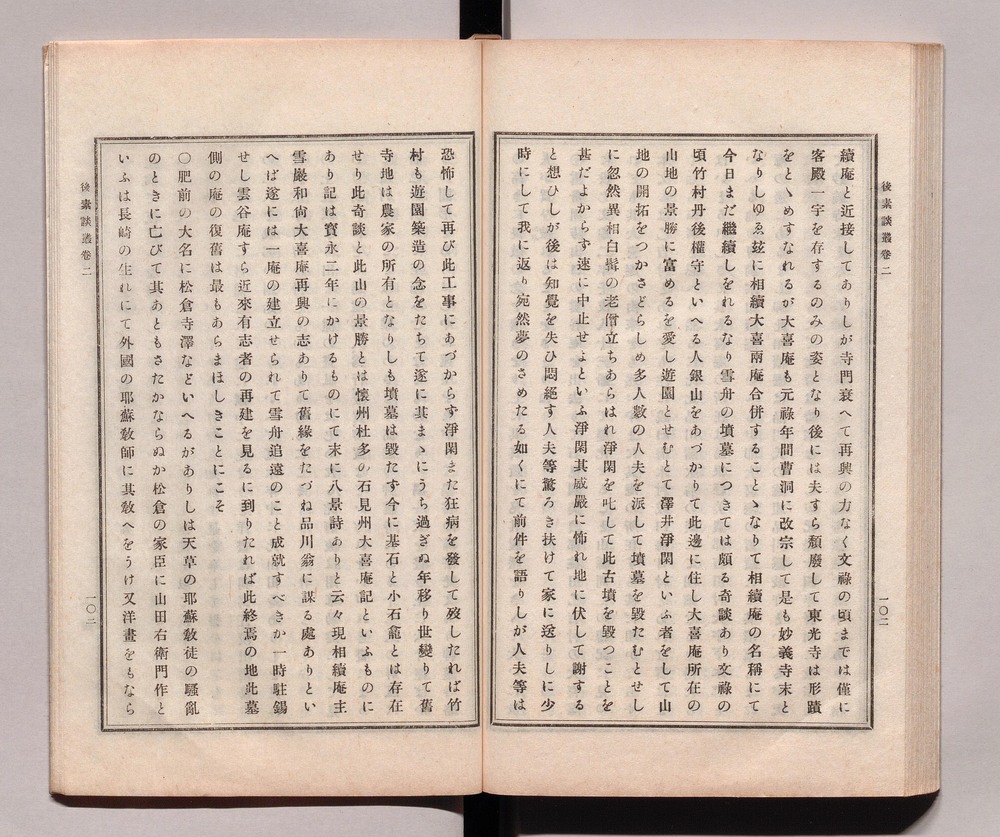 後素談叢卷二
一〇二
續庵と近接してありしが寺門衰へて再興の力なく文祿の頃までは僅に
客殿一宇を存するのみの姿となり後には夫すら頽廢して東光寺は形蹟
をとゝめすなれるが大喜庵も元祿年間曹洞に改宗して是も妙義寺末と
なりしゆゑ玆に相續大喜兩庵合併することゝなりて相續庵の名稱にて
今日まだ繼續しをれるなり雪舟の墳墓につきては頗る奇談あり文祿の
頃竹村丹後權守といへる人銀山をあづかりて此邊に住し大喜庵所在の
山地の景勝に富めるを愛し遊園とせむとて澤井淨閑といふ者をして山
地の開拓をつかさどらしめ多人數の人夫を派して墳墓を毀たむとせし
に忽然異相白髯の老僧立ちあらはれ淨閑を叱して此古墳を毀つことを
甚だよからす速に中止せよといふ淨閑其威嚴に怖れ地に伏して謝する
と想ひしが後は知覺を失ひ悶絕す人夫等驚ろき扶けて家に送りしに少
時にして我に返り宛然夢のさめたる如くにて前件を語りしが人夫等は
恐怖して再び此工事にあづからす淨閑また狂病を發して歿したれば竹
村も遊園築造の念をたちて遂に其まゝにうち過ぎぬ年移り世變りて舊
寺地は農家の所有となりしも墳墓は毀たす今に基石と小石龕とは存在
せり此奇談と此山の景勝とは懷州杜多の石見州大喜庵記といふものに
あり記は寶永二年にかけるものにて末に八景詩ありと云々現相續庵主
雪巖和尙大喜庵再興の志ありて舊緣をたづね品川翁に謀る處ありとい
へば遂には一庵の建立せられて雪舟追遠のこと成就すべきか一時駐錫
せし雲谷庵すら近來有志者の再建を見るに到りたれば此終焉の地此墓
側の庵の復舊は最もあらまほしきことにこそ
〇肥前の大名に松倉寺澤などいへるがありしは天草の耶蘇敎徒の騷亂
のときに亡びて其あともさたかならぬか松倉の家臣に山田右衛門作と
いふは長崎の生れにて外國の耶蘇敎師に其敎へをうけ又洋畫をもなら
後素談叢卷二
一〇三